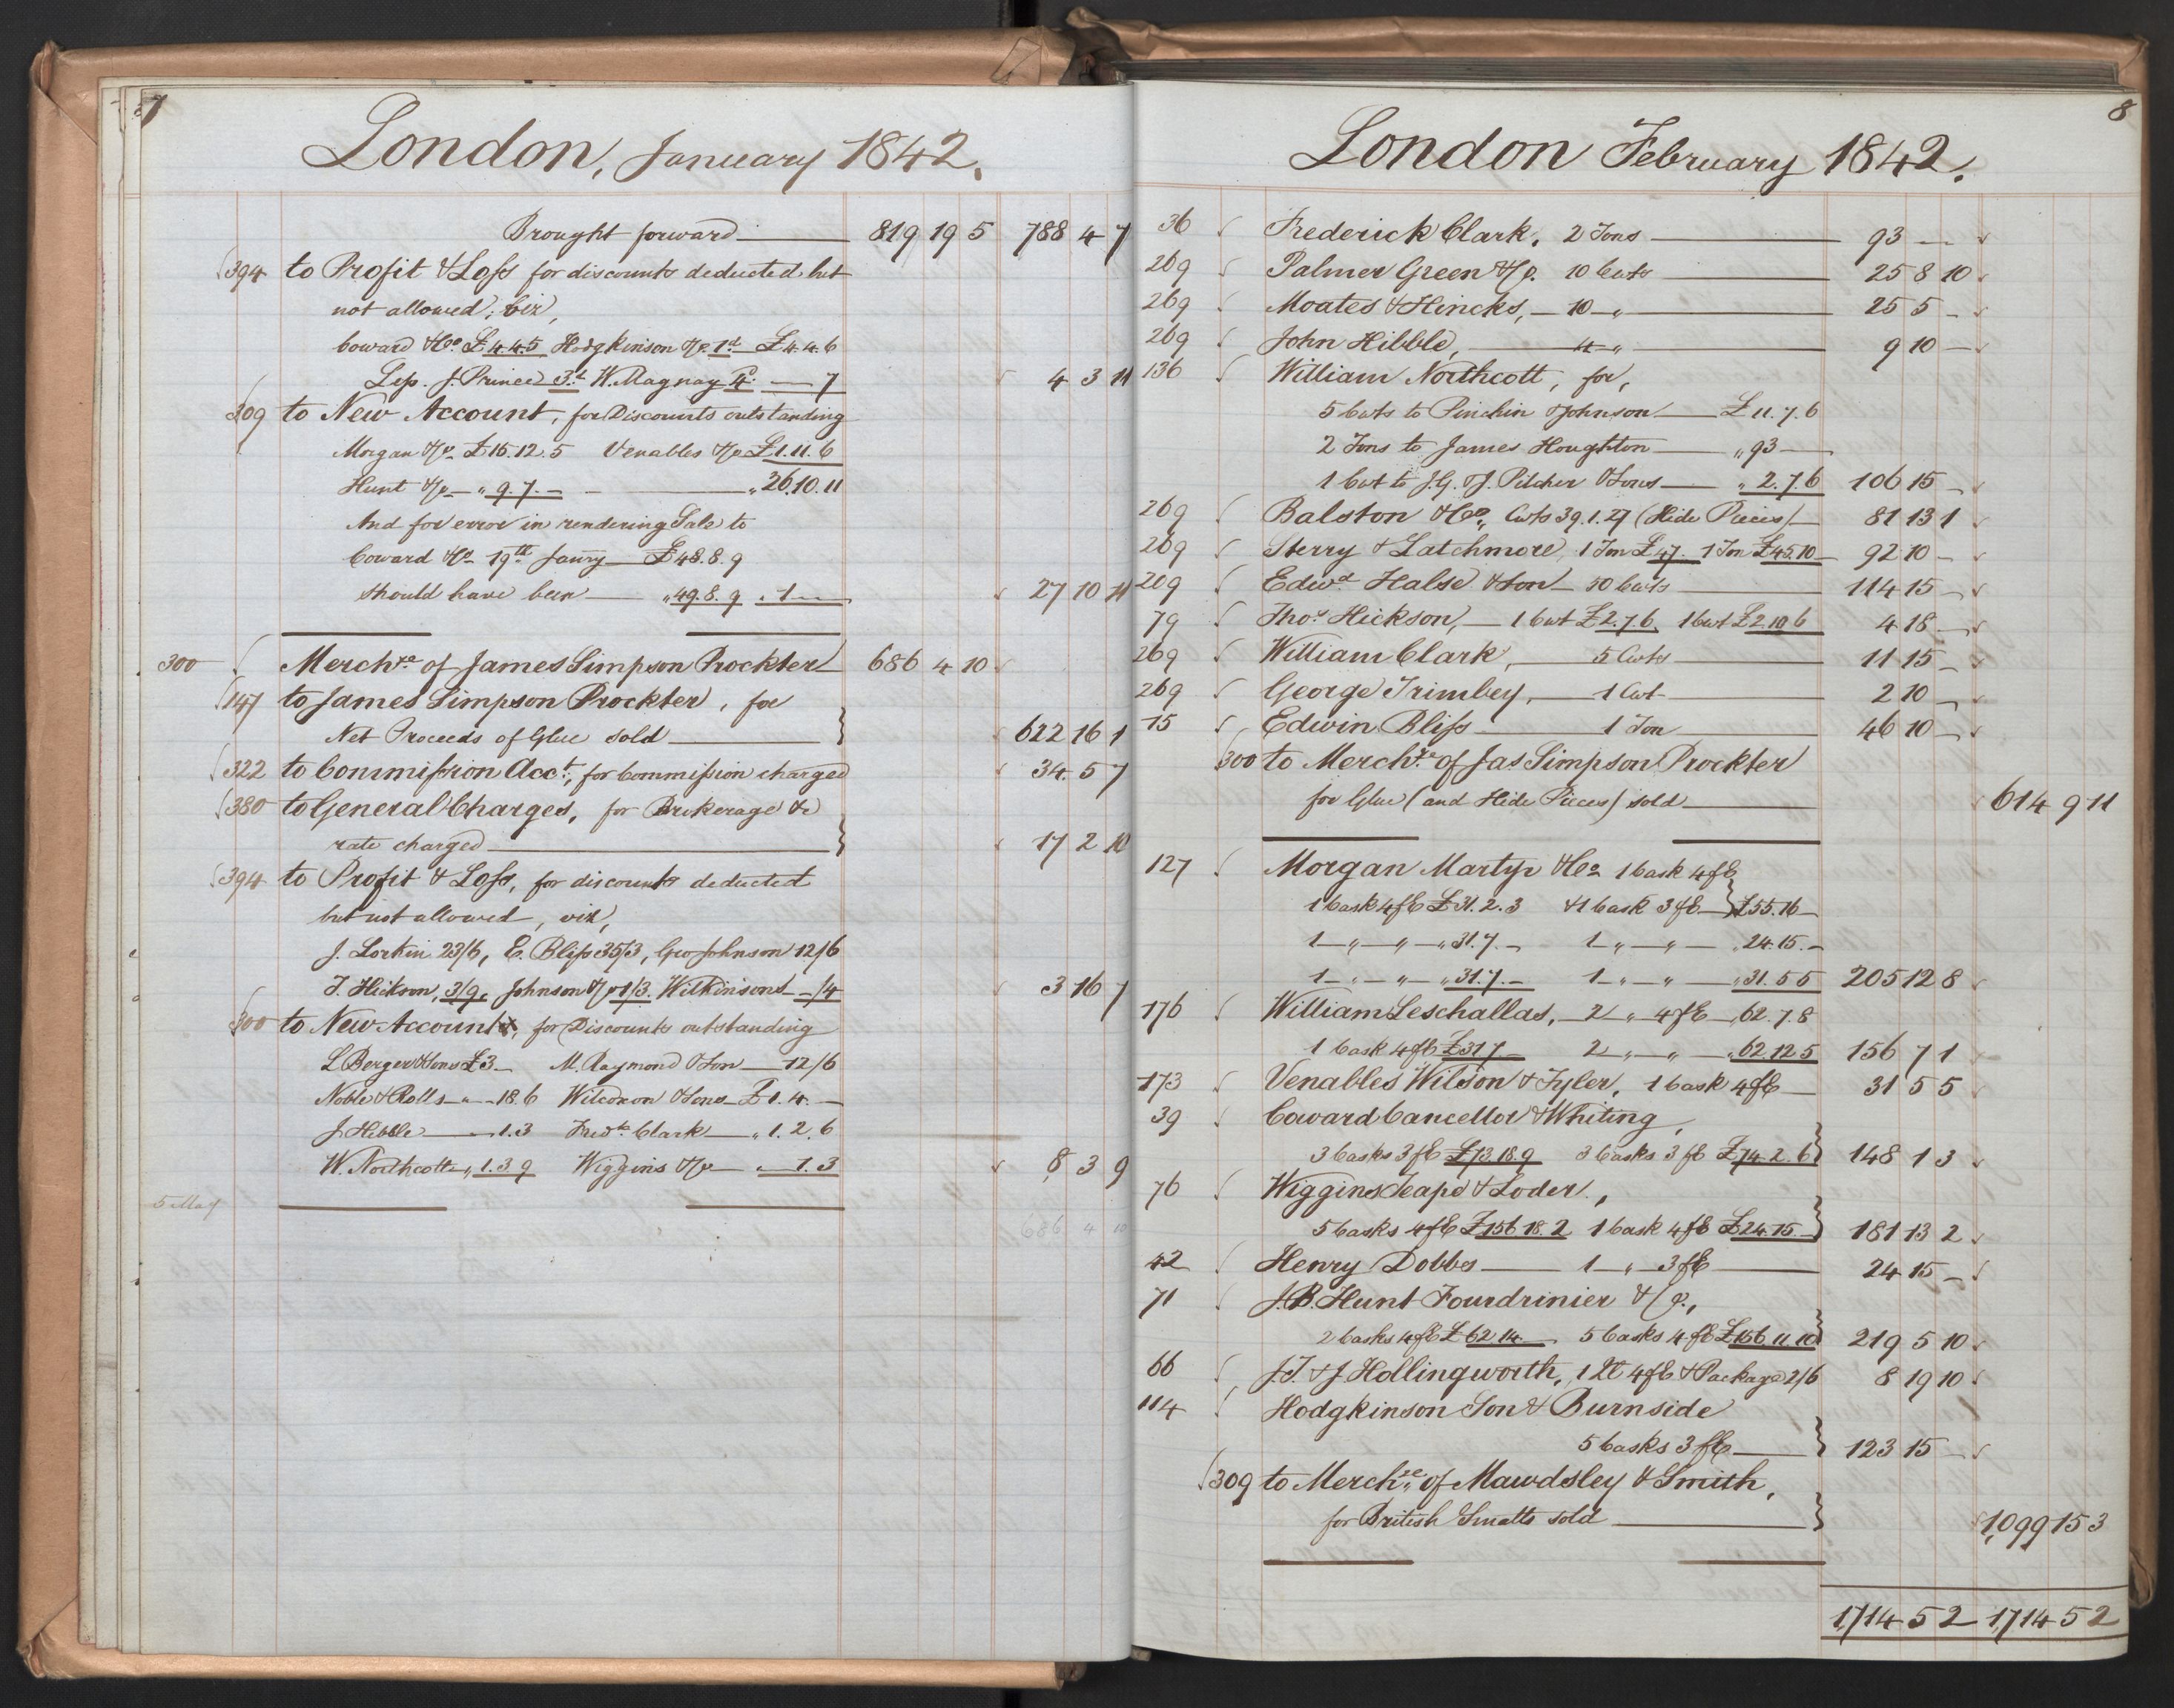 7
London, January 1842.
Brought forward 819 19 5 788 4 7
394 to Profit & Loss for discounts deducted but
not allowed, viz,
Coward & Co £4.4.5 Hodgkinson & Co 1d £4.4.6
Lep. J. Prince 3d W. Magnay 4d — 7 4 3 11
309 to New Account, for Discounts outstanding
Morgan & Co £15.12.5 Venables & Co £1.11.6
Hunt & Co — " 9.7.— — " 26.10.11
And for error in rendering Sale to
Coward & Co 19th Jany £48.8.9
should have been — " 49.8.9 " 1 — — 27 10 11
300 Merchse of James Simpson Prockter 686 4 10
147 to James Simpson Prockter, for
Net Proceeds of Glue sold 622 16 1
322 to Commission Acct, for Commission charged 34 5 7
380 to General Charges, for Brokerage &c
rate charged 17 2 10
394 to Profit & Loss, for discounts deducted
but not allowed, viz,
J. Lorkin 23/6, E. Bliss 35/3, Geo Johnson 12/6
T. Hickson, 3/9, Johnson & Co 1/3. Wilkinsons —/4 3 16 7
300 to New Account, for Discounts outstanding
L Berger & Sons £3 — M. Raymond & Son — 12/6
Noble & Rolls — " — 18.6 Wilcoxon & Sons £1.4.—
J Hibble — 1.3 Fredk Clark — " 1.2.6
W. Northcott " 1.3.9 Wiggins & Co — " — 1.3 8 3 9
5 May
686 4 10
8
London February 1842.
36 Frederick Clark, 2 Tons 93 — —
269 Palmer Green & Co. 10 Cwts 25 8 10
269 Moates & Hincks, — 10 — " 25 5 —
269 John Hibble, 4 — " 9 10 —
136 William Northcott, for,
5 Cwts to Pinchin & Johnson £11.7.6
2 Tons to James Houghton " 93 —
1 Cwt to J.G. & J. Pilcher & Sons " 2.7.6 106 15 —
269 Balston & Co, Cwts 39.1.27 (Hide Pieces) 81 13 1
269 Sterry & Latchmore, 1 Ton £47. 1 Ton £45.10 92 10 —
269 Edwd Halse & Son — 50 Cwts 114 15 —
79 Thos Hickson, — 1 Cwt £2.7.6. 1 Cwt £2.10.6 4 18 —
269 William Clark, 5 Cwts 11 15 —
269 George Trimbey, 1 Cwt 2 10 —
15 Edwin Bliss 1 Ton 46 10 —
300 to Merchse of Jas Simpson Prockter
for Glue (and Hide Pieces) sold 614 9 11
127 Morgan Martyr & Co 1 Cask 4 fE
1 Cask 4 fE £31.2.3 & 1 Cask 3 fE £55.16 —
1 — " — " — " 31.7.— 1 — " — " — " 24.15.—
1 — " — " — " 31.7.— 1 — " — " — " 31.5.5 205 12 8
176 William Leschallas, — 2 " 4 fE — " 62.7.8
1 Cask 4 fE £31 7 — 2 — " — " — " 62.12.5 156 7 1
173 Venables Wilson & Tyler, 1 Cask 4 fE 31 5 5
39 Coward Cancellor & Whiting,
3 Casks 3 fE £73.18.9 3 Casks 3 fE £74.2.6 148 1 3
76 Wiggins Teape & Loder,
5 Casks 4 fE £156 18.2 1 Cask 4 fE £24.15.— 181 13 2
42 Henry Dobbs — 1 — " — 3 fE 24 15 —
71 J.B. Hunt Fourdrinier & Co.,
2 Casks 4 fE £62 14.— 5 Casks 4 fE £156 11 10 219 5 10
66 J.T. & J Hollingworth, 1 4 fE & Package 2/6 8 19 10
114 Hodgkinson Son & Burnside
5 Casks 3 fE 123 15 —
309 to Merchse of Mawdsley & Smith,
for British Smalts sold 1,099 15 3
1,714 5 2 1,714 5 2